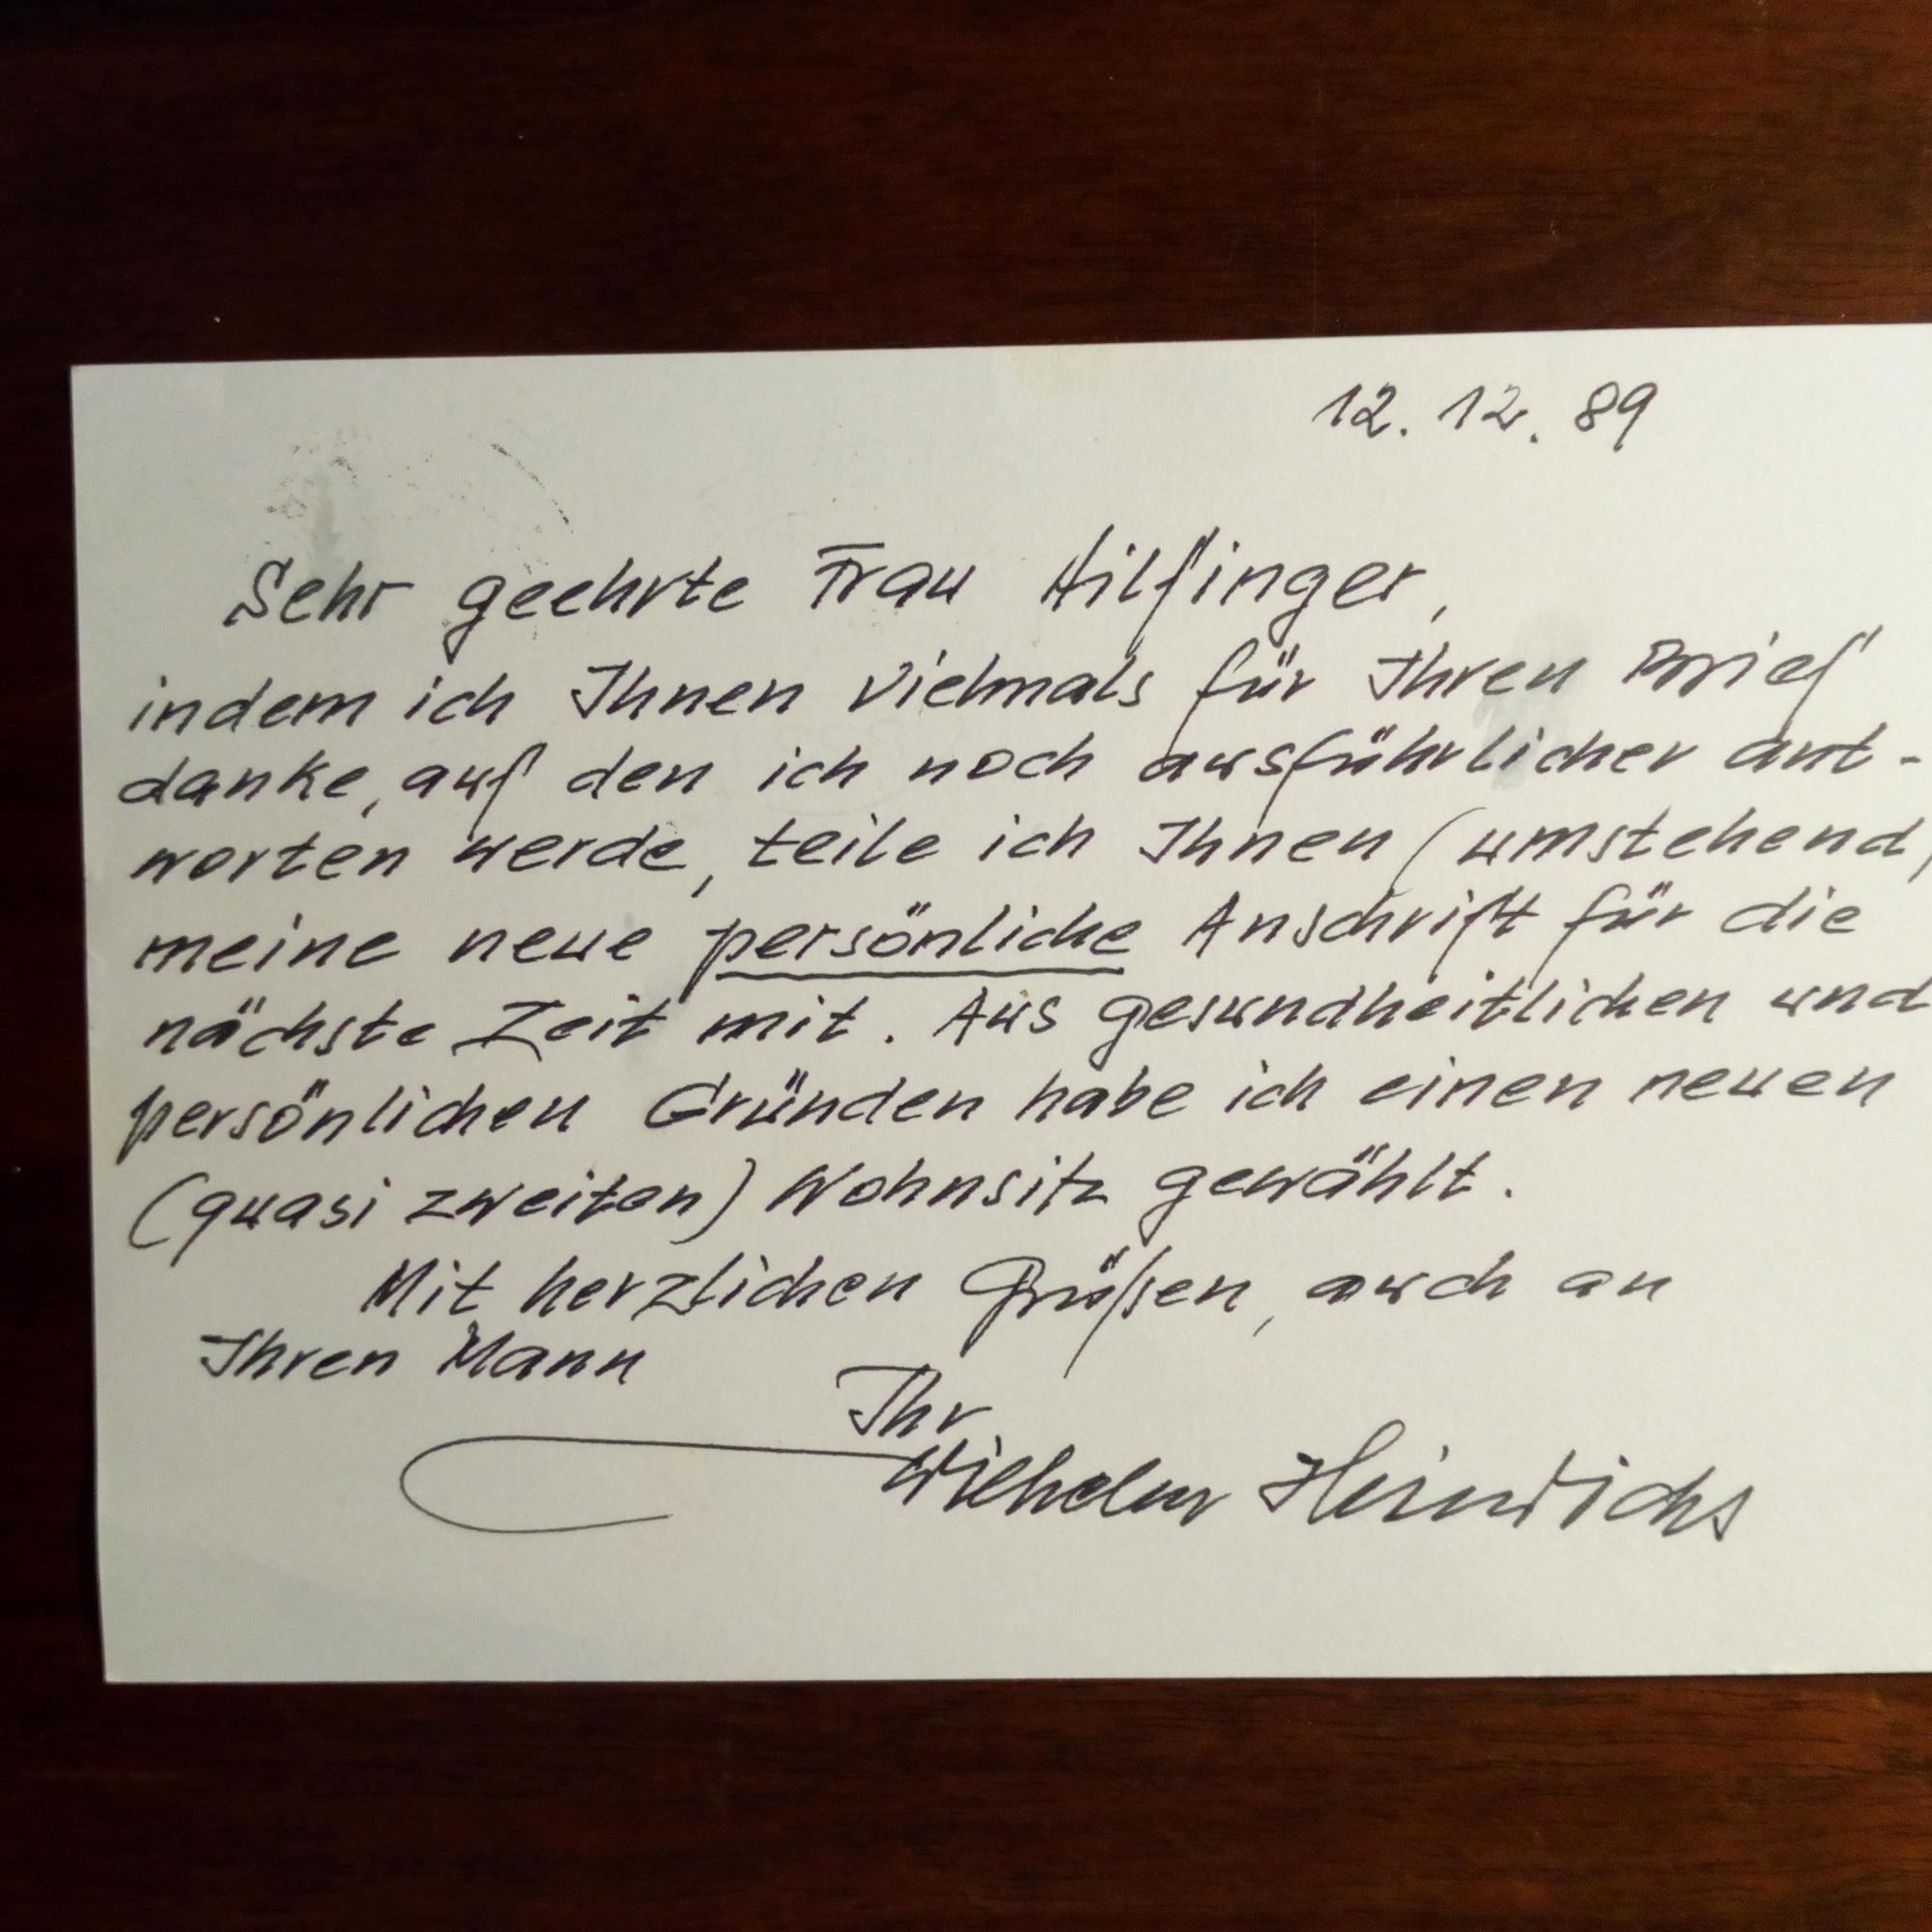 12. 12. 89
Sehr geehrte Frau Hilfinger,
indem ich Ihnen vielmals für Ihren Brief
danke, auf den ich noch ausführlicher ant-
worten werde, teile ich Ihnen (umstehend)
meine neue persönliche Anschrift für die
nächste Zeit mit. Aus gesundheitlichen und
persönlichen Gründen habe ich einen neuen
(quasi zweiten) Wohnsitz gewählt.
Mit herzlichen Grüßen, auch an
Ihren Mann
Ihr
Wilhelm Heinrichs